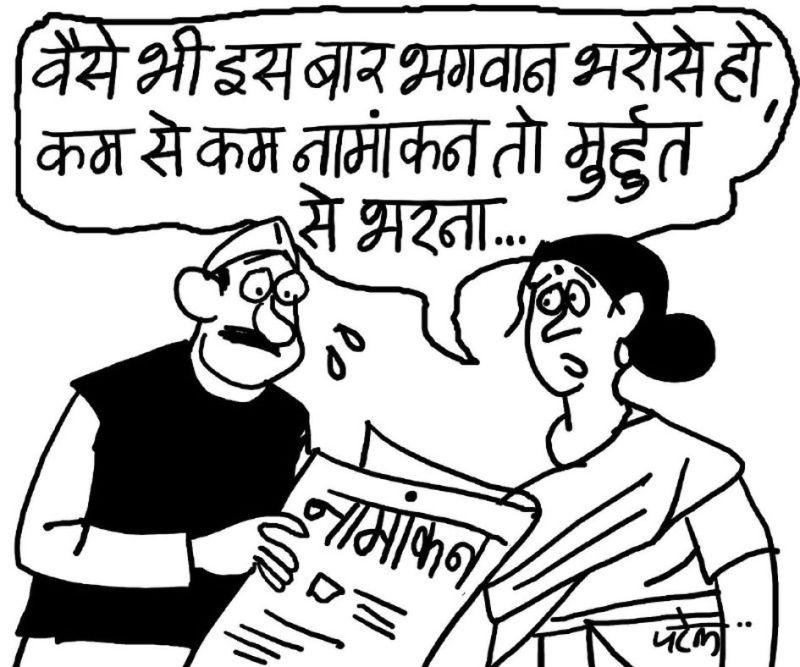 वैसे भी इस बार भगवान भरोसे हो,
कम से कम नामांकन तो मुर्हुत
से भरना...
नामांकन
पटेल..